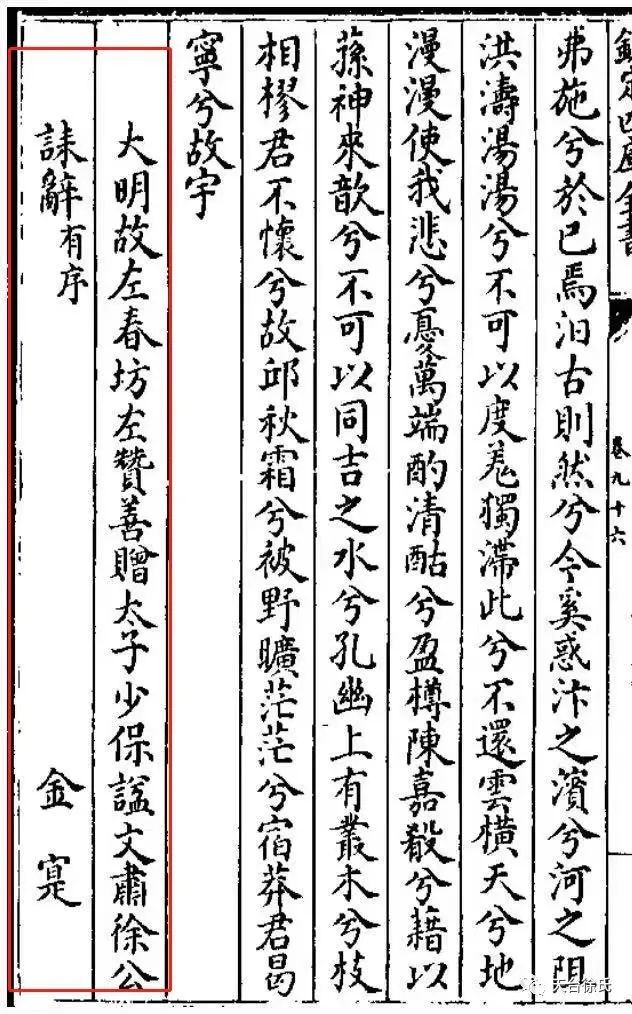 欽定四庫全書
卷九十六
弗施兮於已焉汨古則然兮今奚惑汴之濱兮河之阻
洪濤湯湯兮不可以度羌獨滯此兮不還雲橫天兮地
漫漫使我悲兮憂萬端酌清酤兮盈樽陳嘉殽兮藉以
蓀神來歆兮不可以同吉之水兮孔幽上有叢木兮枝
相樛君不懷兮故邱秋霜兮被野曠茫茫兮宿莽君曷
寧兮故宇
大明故左春坊左贊善贈太子少保諡文肅徐公
誄辭有序 金寔
天台徐氏